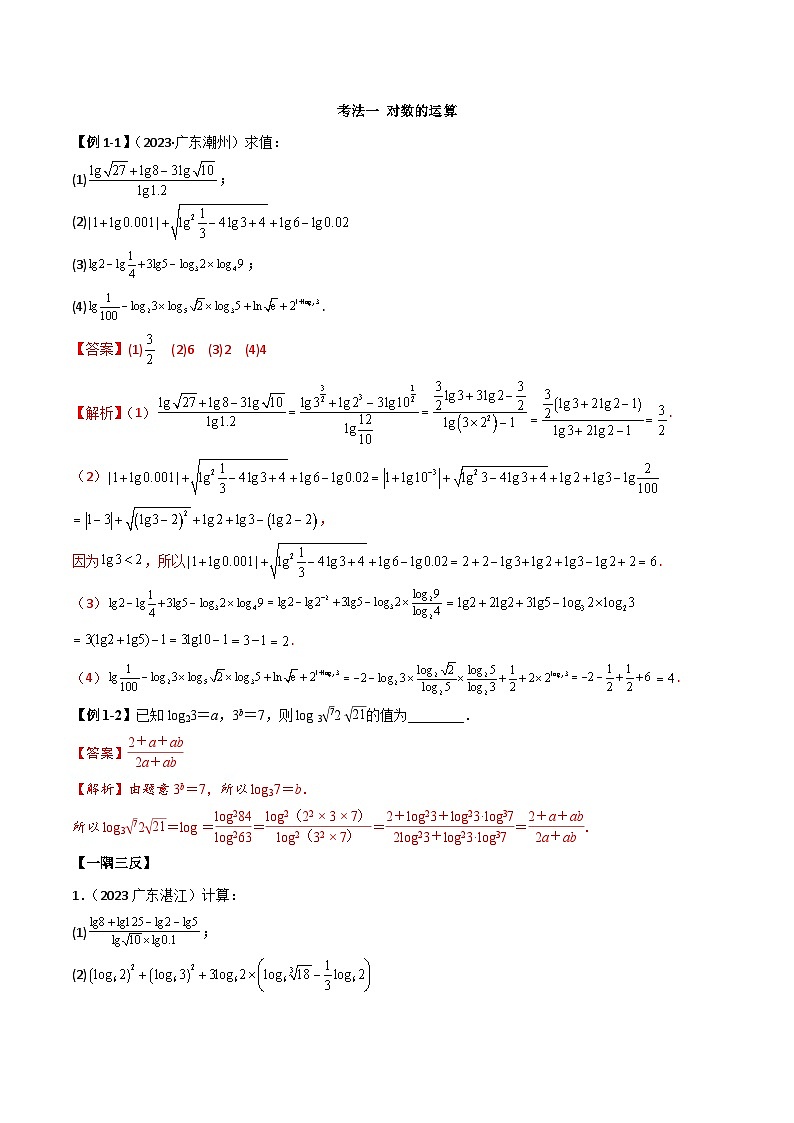 考法一 对数的运算
【例1-1】（2023·广东潮州）求值：
(1) $\frac{\lg\sqrt{27}+\lg8-3\lg\sqrt{10}}{\lg1.2}$；
(2) $|1+\lg0.001|+\sqrt{\lg^2\frac{1}{3}-4\lg3+4}+\lg6-\lg0.02$
(3) $\lg2-\lg\frac{1}{4}+3\lg5-\log_32\times\log_49$；
(4) $\lg\frac{1}{100}-\log_23\times\log_5\sqrt{2}\times\log_35+\ln\sqrt{e}+2^{1+\log_23}$.
【答案】(1) $\frac{3}{2}$ (2)6 (3)2 (4)4
【解析】（1）$\frac{\lg\sqrt{27}+\lg8-3\lg\sqrt{10}}{\lg1.2}=\frac{\lg3^{\frac{3}{2}}+\lg2^3-3\lg10^{\frac{1}{2}}}{\lg\frac{12}{10}}=\frac{\frac{3}{2}\lg3+3\lg2-\frac{3}{2}}{\lg(3\times2^2)-1}=\frac{\frac{3}{2}(\lg3+2\lg2-1)}{\lg3+2\lg2-1}=\frac{3}{2}$.
（2）$|1+\lg0.001|+\sqrt{\lg^2\frac{1}{3}-4\lg3+4}+\lg6-\lg0.02=|1+\lg10^{-3}|+\sqrt{\lg^23-4\lg3+4}+\lg2+\lg3-\lg\frac{2}{100}$
$=|1-3|+\sqrt{(\lg3-2)^2}+\lg2+\lg3-(\lg2-2)$，
因为$\lg3<2$，所以$|1+\lg0.001|+\sqrt{\lg^2\frac{1}{3}-4\lg3+4}+\lg6-\lg0.02=2+2-\lg3+\lg2+\lg3-\lg2+2=6$.
（3）$\lg2-\lg\frac{1}{4}+3\lg5-\log_32\times\log_49=\lg2-\lg2^{-2}+3\lg5-\log_32\times\frac{\log_29}{\log_24}=\lg2+2\lg2+3\lg5-\log_32\times\log_23$
$=3(\lg2+\lg5)-1=3\lg10-1=3-1=2$.
（4）$\lg\frac{1}{100}-\log_23\times\log_5\sqrt{2}\times\log_35+\ln\sqrt{e}+2^{1+\log_23}=-2-\log_23\times\frac{\log_2\sqrt{2}}{\log_25}\times\frac{\log_25}{\log_23}+\frac{1}{2}+2\times2^{\log_23}=-2-\frac{1}{2}+\frac{1}{2}+6=4$.
【例1-2】已知log₂3＝a，3ᵇ＝7，则log 3$\sqrt{7}$2 $\sqrt{21}$的值为________.
【答案】$\frac{2+a+ab}{2a+ab}$
【解析】由题意3ᵇ＝7，所以log₃7＝b.
所以log₃$\sqrt{7}$2$\sqrt{21}$＝log＝$\frac{log^284}{log^263}$＝$\frac{log^2（2^2×3×7）}{log^2（3^2×7）}$＝$\frac{2+log^23+log^23·log^37}{2log^23+log^23·log^37}$＝$\frac{2+a+ab}{2a+ab}$.
【一隅三反】
1.（2023广东湛江）计算：
(1) $\frac{\lg8+\lg125-\lg2-\lg5}{\lg\sqrt{10}\times\lg0.1}$；
(2) $(\log_62)^2+(\log_63)^2+3\log_62\times\left(\log_6\sqrt[3]{18}-\frac{1}{3}\log_62\right)$